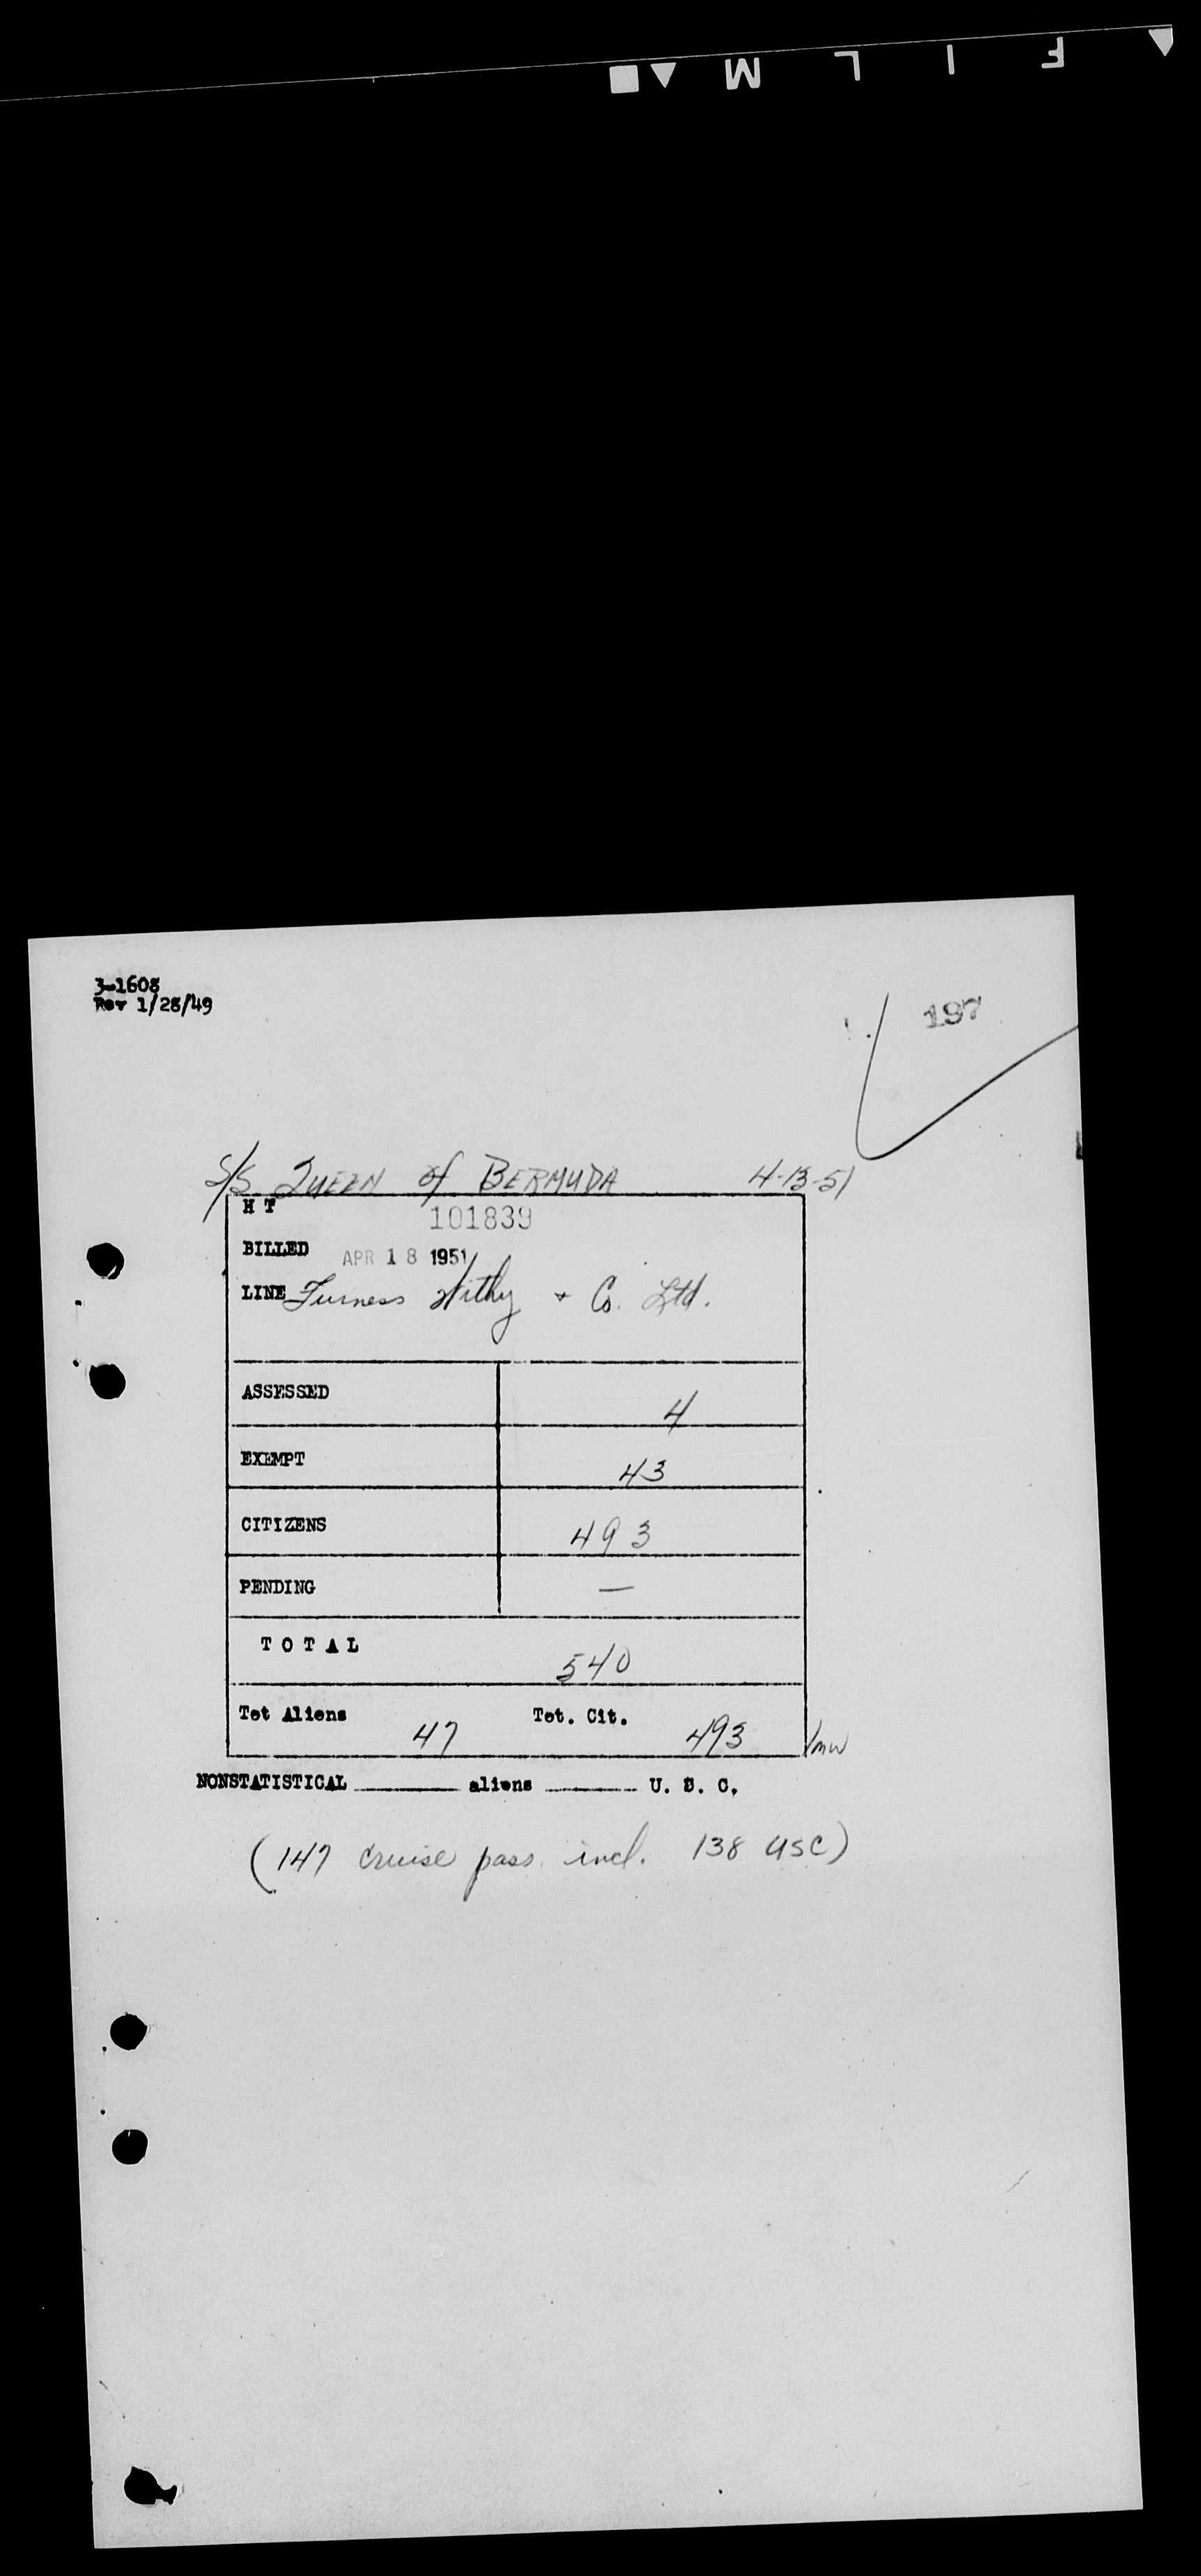 FILM
3-1608
Rev 1/28/49
197
S/S QUEEN of BERMUDA 4-13-51
H T 101839
BILLED APR 18 1951
LINE Furness Withy + Co. Ltd.
ASSESSED 4
EXEMPT 43
CITIZENS 493
PENDING —
TOTAL 540
Tot Aliens 47 Tot. Cit. 493 /mw
NONSTATISTICAL ______ aliens ______ U. S. C.
(147 cruise pass. incl. 138 USC)